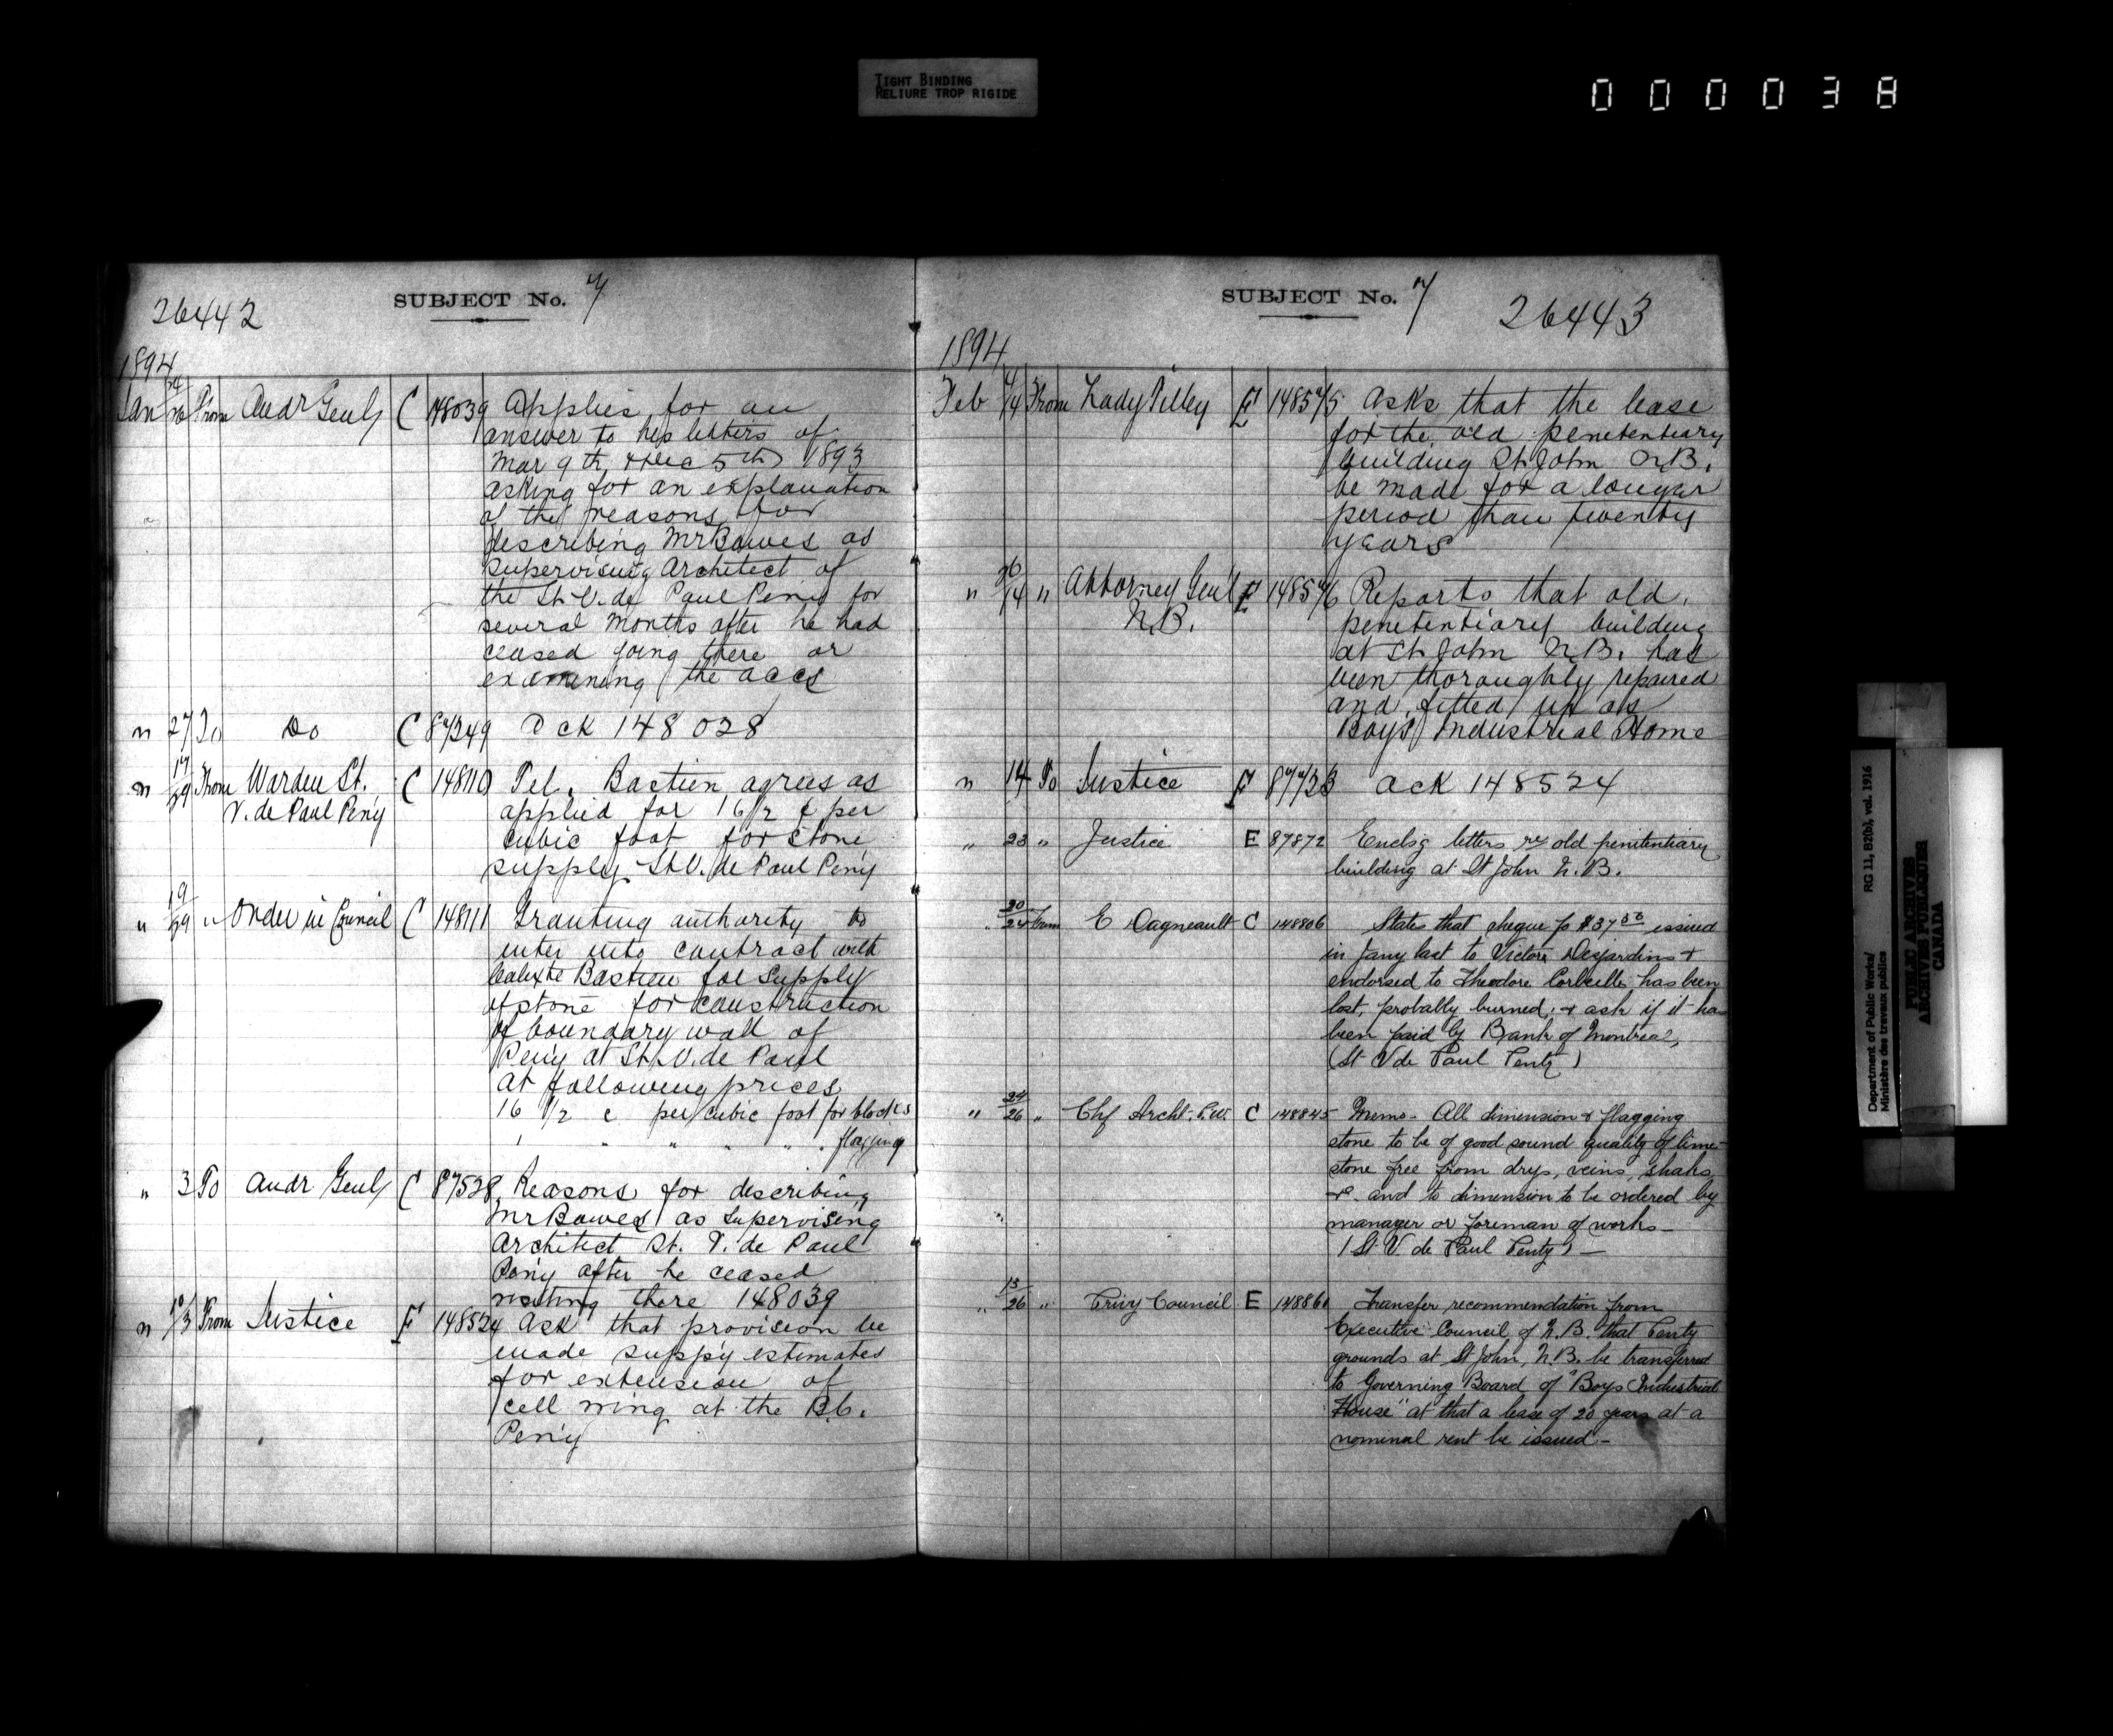 TIGHT BINDING
RELIURE TROP RIGIDE
000038
26442
SUBJECT No. 7
1894
Jan 24/26 From Audr Genl C 148039 Applies for an
answer to his letters of
Mar 9th & Dec 5th 1893
asking for an explanation
of the reasons for
describing Mr Bowes as
Supervising Architect of
the St. V. de Paul Peny for
several months after he had
ceased going there or
examining the accs
" 27 To Do C 87249 Ack 148028
" 17/29 From Warden St. V. de Paul Peny C 148110 Tel. Bastien agrees as
applied for 16 1/2 ¢ per
cubic foot for stone
supply St V. de Paul Peny
" 19/29 " Order in Council C 148111 Granting authority to
enter into contract with
Calixte Bastien for supply
of stone for construction
of boundary wall of
Peny at St. V. de Paul
at following prices
16 1/2 c per cubic foot for blocks
" " " " flagging
" 3 To Audr Genl C 87528 Reasons for describing
Mr Bowes as Supervising
Architect St. V. de Paul
Peny after he ceased
visiting there 148039
" 10/3 From Justice E 148524 Ask that provision be
made suppy estimates
for extension of
cell wing at the B.C.
Peny
SUBJECT No. 7
26443
1894
Feb /14 From Lady Tilley E 148575 Asks that the lease
for the old penetentiary
building St. John N.B.
be made for a longer
period than twenty
years
" 26/14 " Attorney Genl N.B. E 148576 Reports that old
penetentiary building
at St. John N.B. has
been thoroughly repaired
and fitted up as
Boys Industrial Home
" 14 To Justice E 87723 Ack 148524
" 23 " Justice E 87872 Enclsg letters re old penitentiary
building at St John N.B.
" 20/24 From E Dagneault C 148806 States that cheque fo $37.50 issued
in Jany last to Victor Desjardins &
endorsed to Theodore Corbeille, has been
lost, probably burned, & ask if it has
been paid by Bank of Montreal,
(St V de Paul Penty)
" 24/26 " Chf Archt. P.W. C 148845 Memo - All dimension & flagging
stone to be of good sound quality of lime-
stone free from drys, veins, shaks,
&c. and to dimension to be ordered by
manager or foreman of works -
(St V. de Paul Penty) -
" 13/26 " Privy Council E 148861 Transfer recommendation from
Executive Council of N.B. that Penty
grounds at St John, N.B. be transferred
to Governing Board of "Boys Industrial
House" at that a lease of 20 years at a
nominal rent be issued -
Department of Public Works/ RG 11, B2(b), vol. 1916
Ministère des travaux publics
PUBLIC ARCHIVES
ARCHIVES PUBLIQUES
CANADA